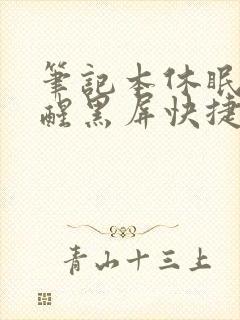 筆記本休眠
醒黑屏快捷
青山十三上